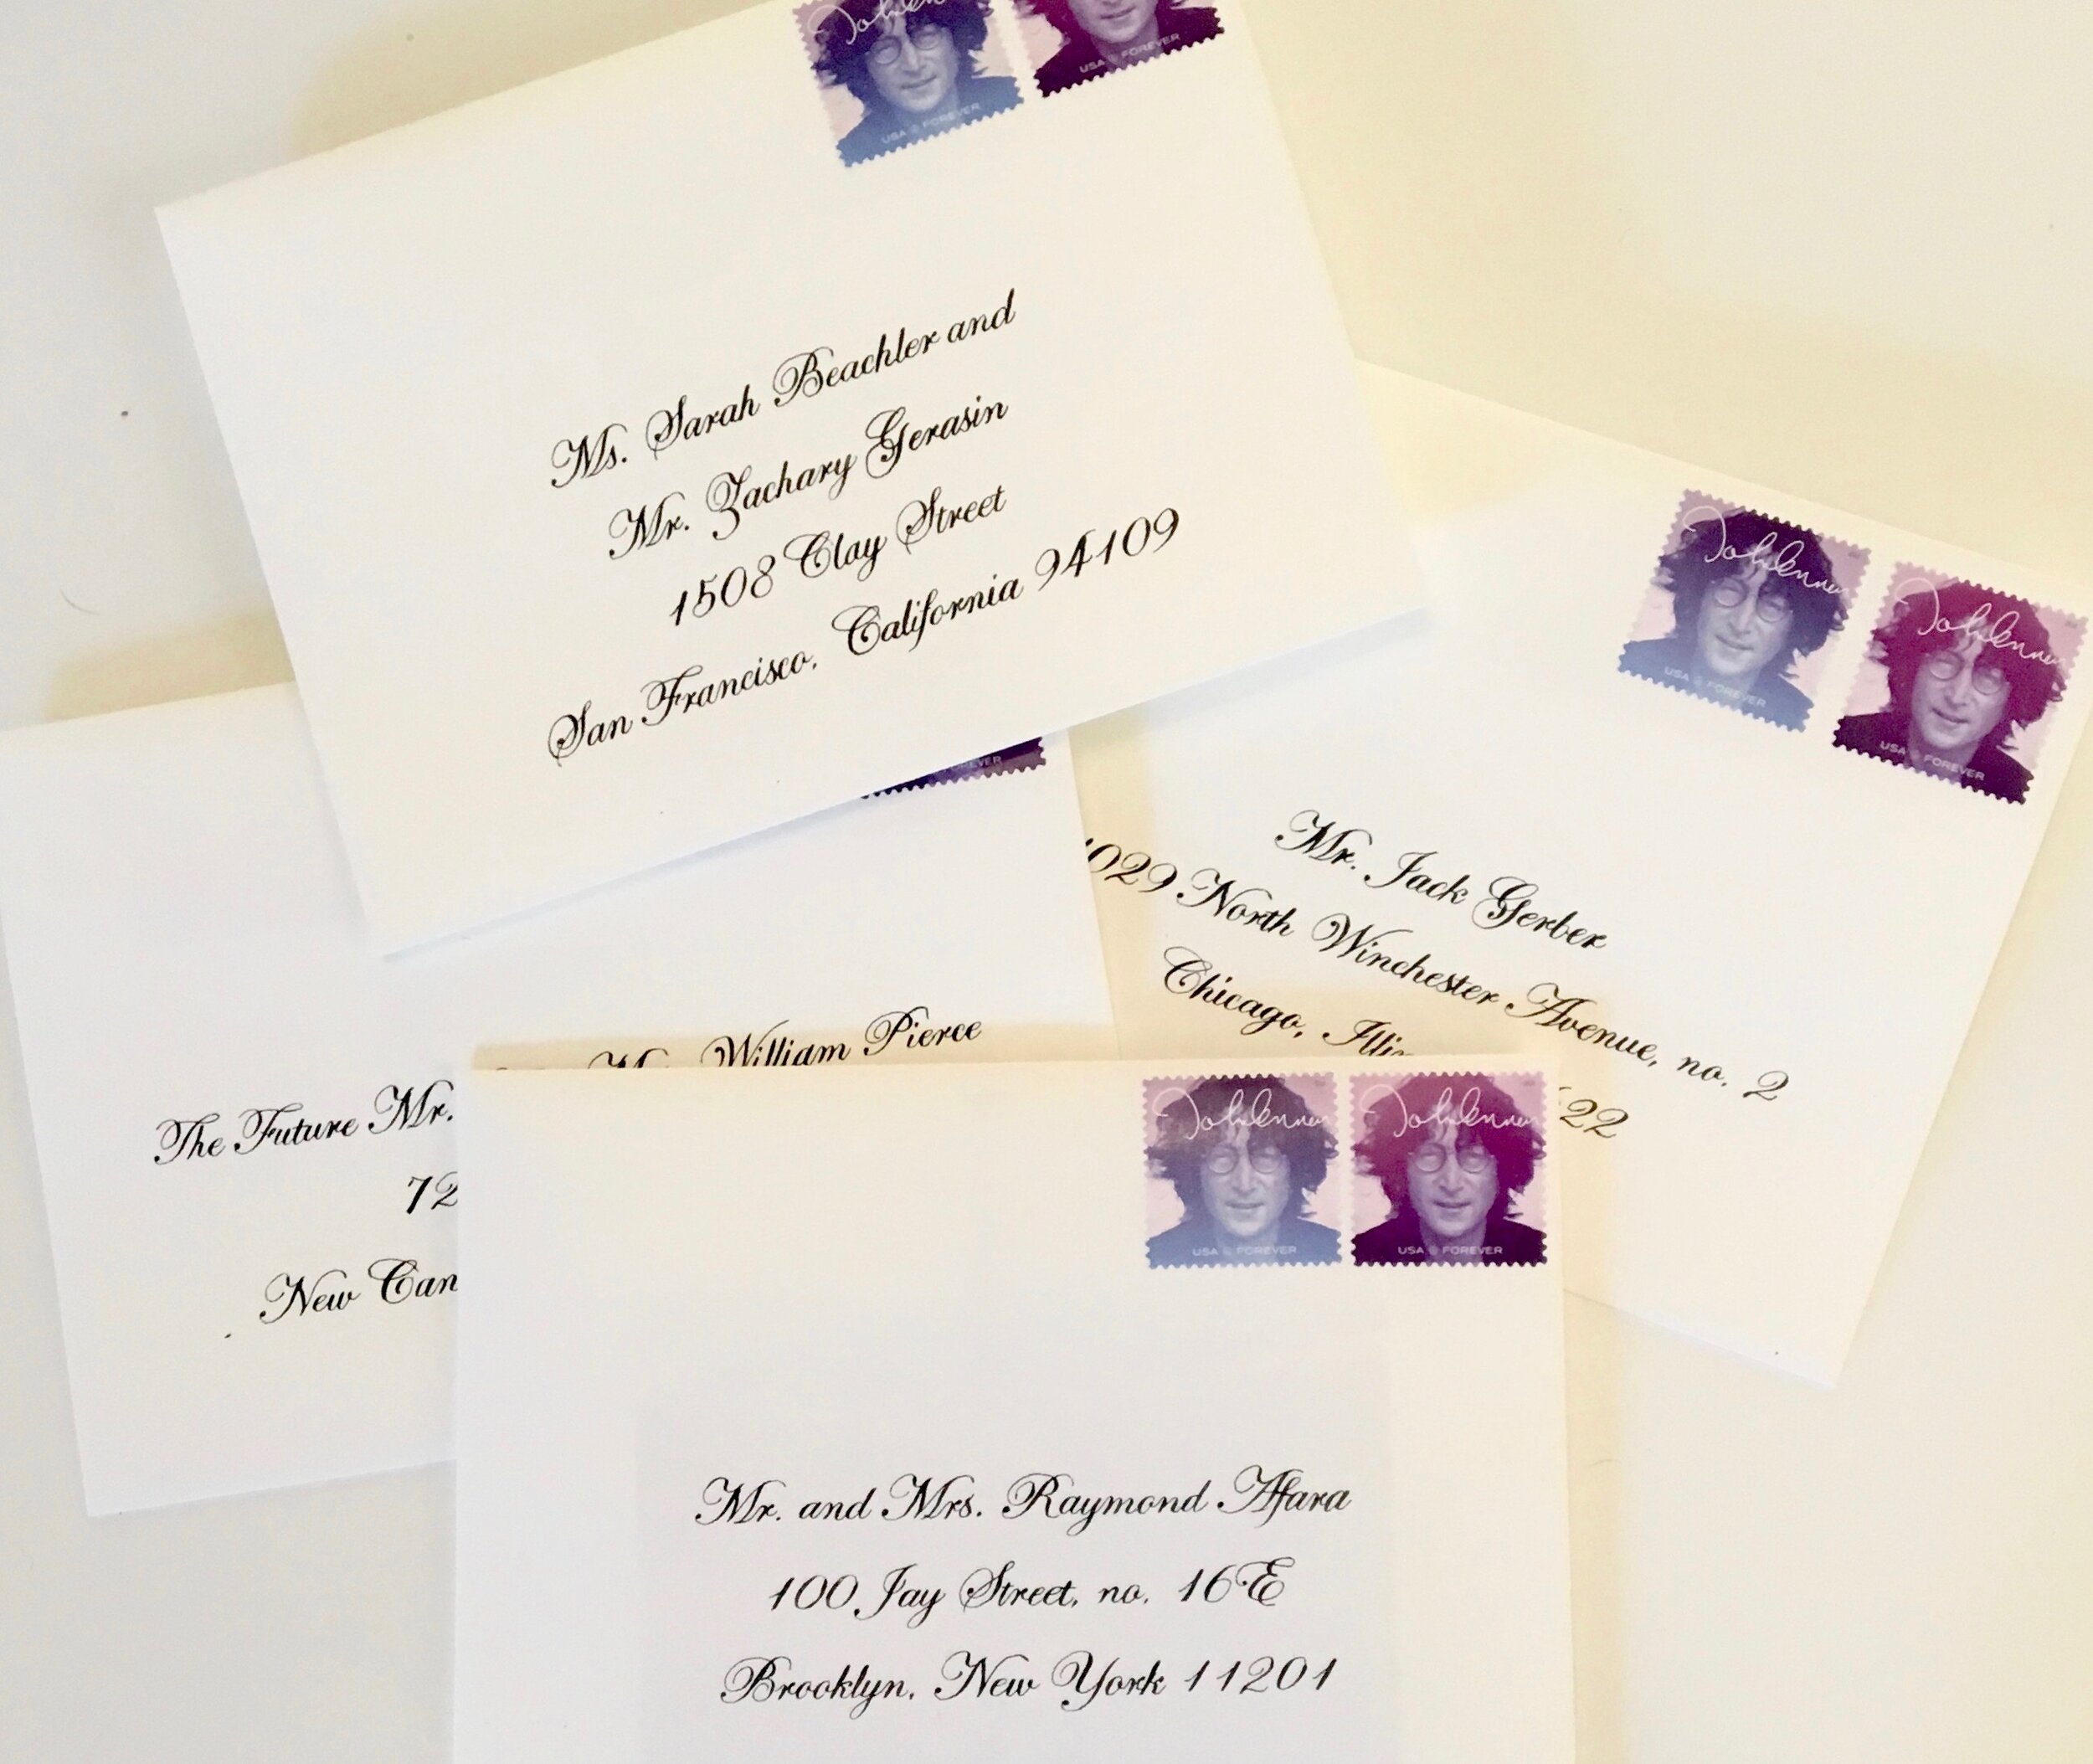 John Lennon
USA FOREVER
USA FOREVER
Ms. Sarah Beachler and
Mr. Zachary Gerasin
1508 Clay Street
San Francisco, California 94109
John Lennon
USA FOREVER
John Lennon
USA FOREVER
Mr. Jack Gerber
1029 North Winchester Avenue, no. 2
Chicago,
22
William Pierce
The Future Mr.
72
New
John Lennon
USA FOREVER
John Lennon
USA FOREVER
Mr. and Mrs. Raymond Afara
100 Jay Street, no. 16E
Brooklyn, New York 11201